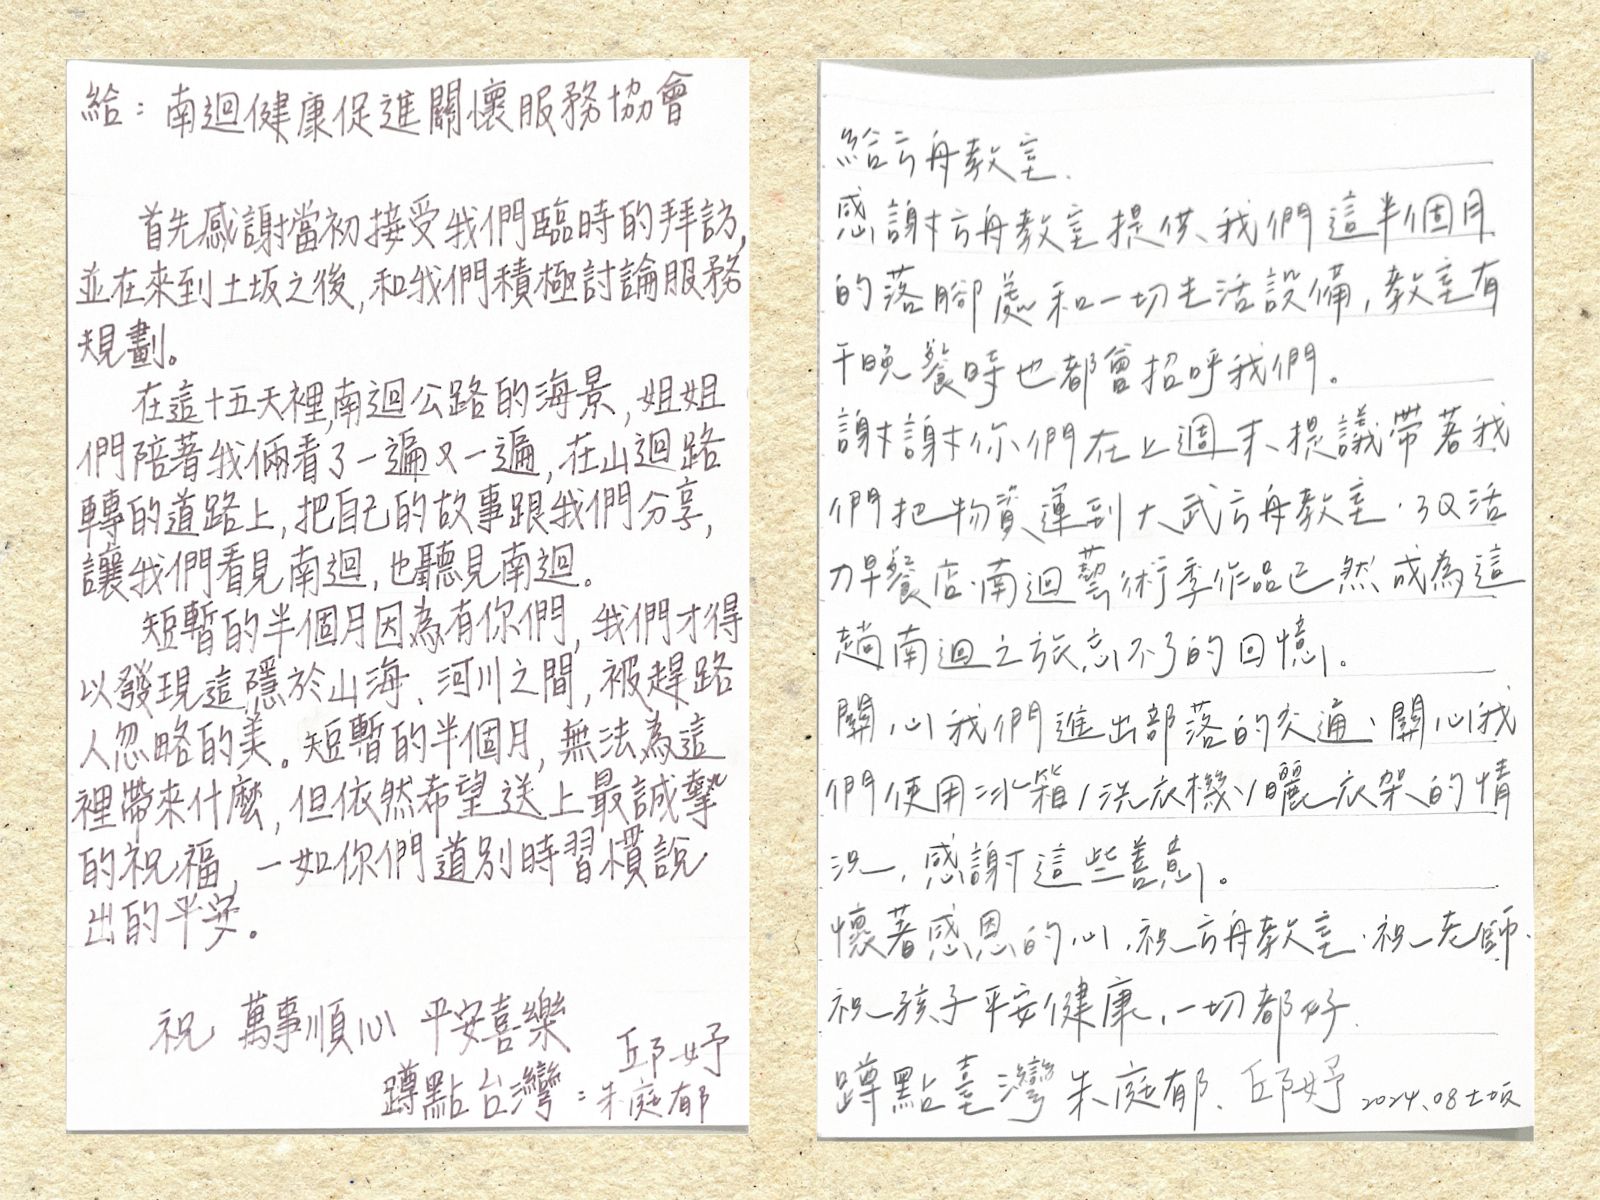 給：南迴健康促進關懷服務協會
首先感謝當初接受我們臨時的拜訪，
並在來到土坂之後，和我們積極討論服務
規劃。
在這十五天裡，南迴公路的海景，姐姐
們陪著我倆看了一遍又一遍，在山迴路
轉的道路上，把自己的故事跟我們分享，
讓我們看見南迴，也聽見南迴。
短暫的半個月因為有你們，我們才得
以發現這隱於山海、河川之間，被趕路
人忽略的美。短暫的半個月，無法為這
裡帶來什麼，但依然希望送上最誠摯
的祝福，一如你們道別時習慣說
出的平安。
祝 萬事順心 平安喜樂
邱妤
蹲點台灣：朱庭郁
給方舟教室、
感謝方舟教室提供我們這半個月
的落腳處和一切生活設備，教室有
干晚餐時也都會招呼我們。
謝謝你們在上週末提議帶著我
們把物資運到大武方舟教室、3Q活
力早餐店、南迴藝術季作品已然成為這
趟南迴之旅忘不了的回憶。
關心我們進出部落的交通、關心我
們使用冰箱/洗衣機/曬衣架的情
況，感謝這些善意。
懷著感恩的心，祝方舟教室、祝老師、
祝孩子平安健康，一切都好。
蹲點臺灣 朱庭郁、邱妤 2024.08 土坂